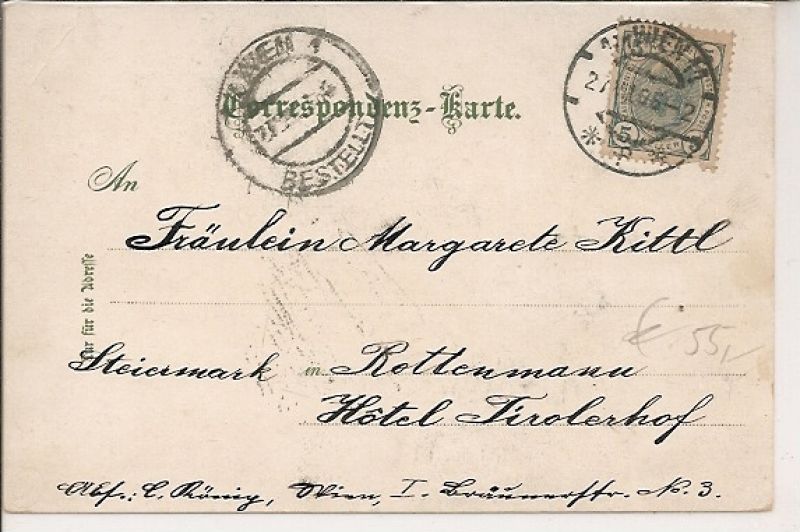 WIEN 1
BESTELLT
WIEN
Correspondenz-Karte.
An
Fräulein Margarete Kittl
Nur für die Adresse
Steiermark in Rottenmann
Hôtel Tirolerhof
€ 55,-
Abs.: C. König, Wien, I. Bräunerstr. No. 3.